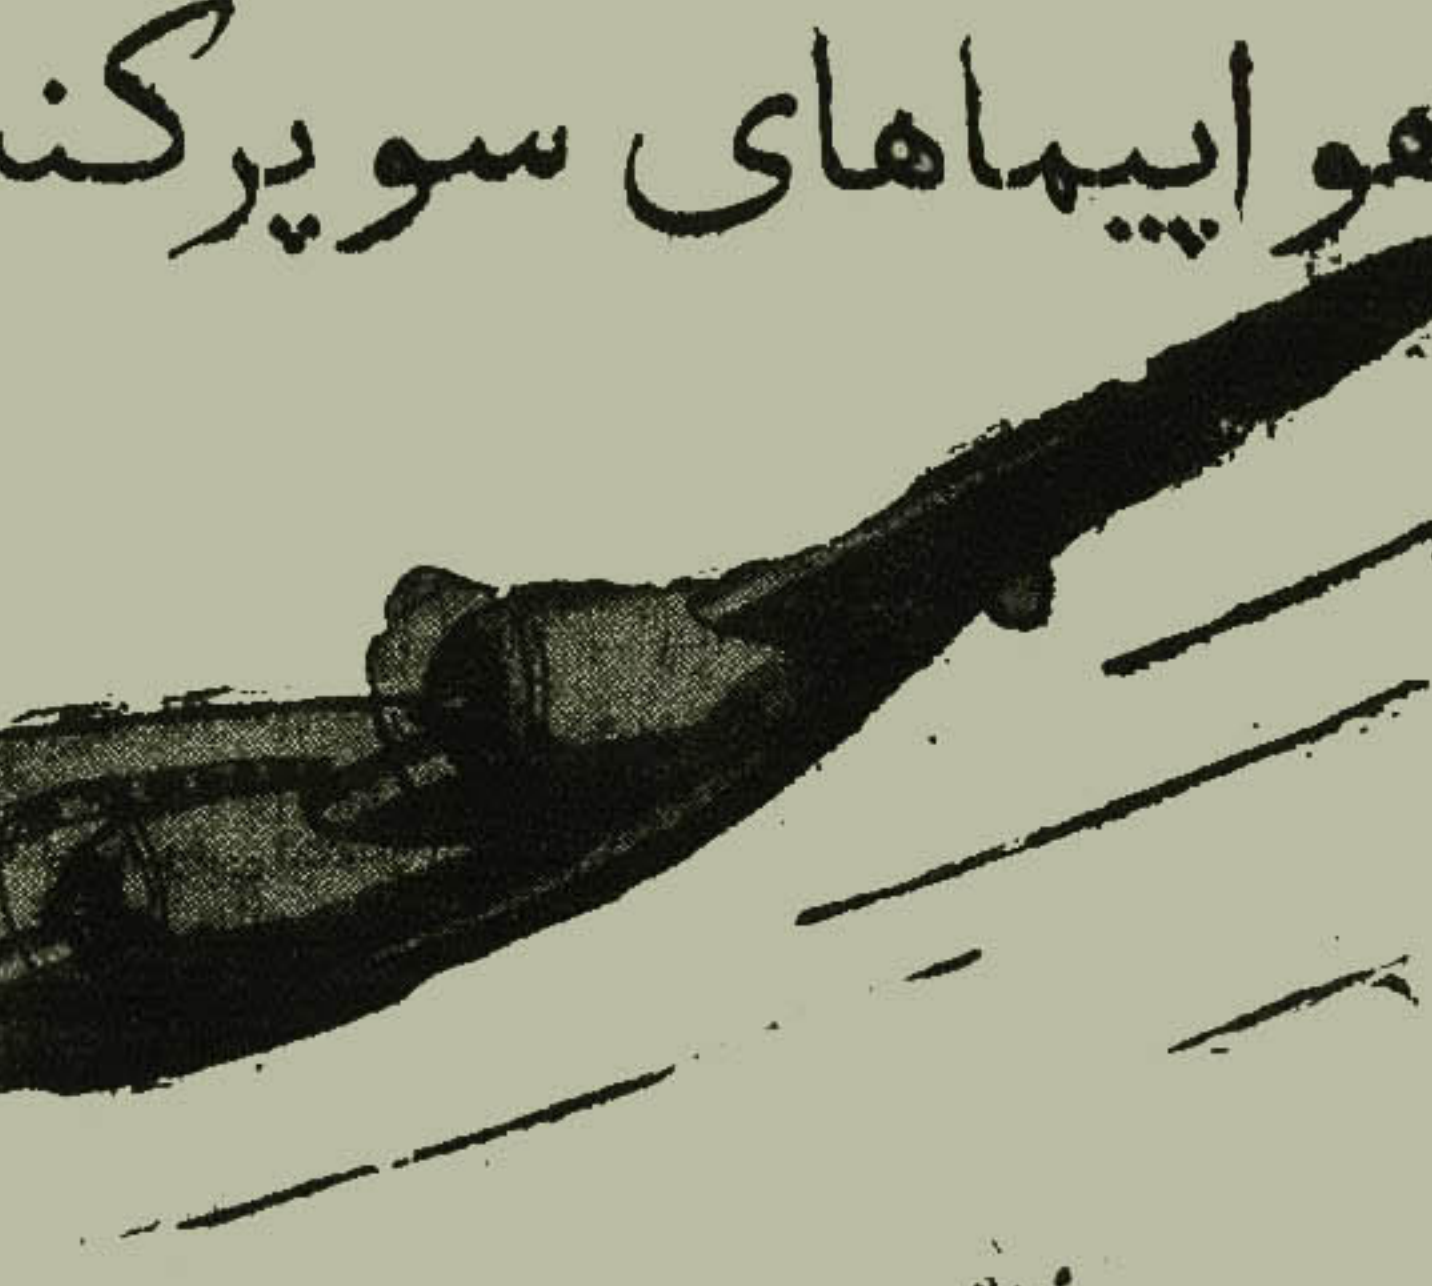 هواپیماهای سوپرکن